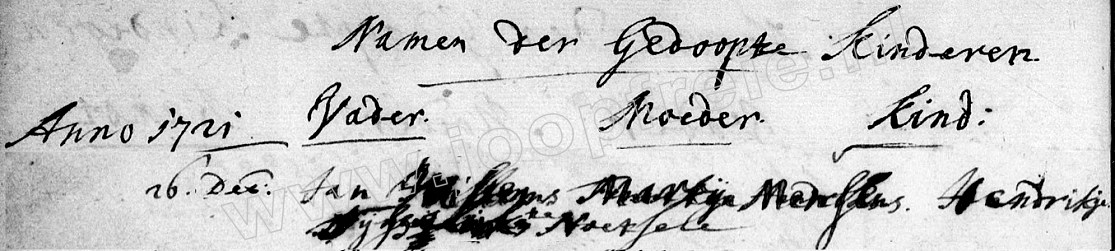 Namen der Gedoopte Kinderen
Anno 1721 Vader. Moeder. Kind:
26. Dec. Jan Willems Martje Hendriks. Hendrikje
te Noesele
www.joopreje.nl